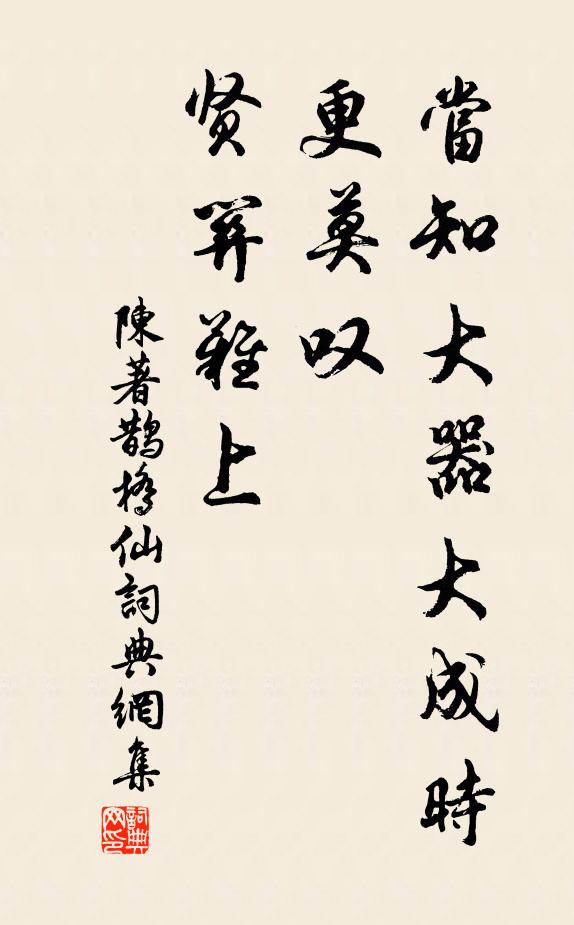 當知大器大成時
更莫叹
贤關難上
陳著鵲橋仙詞典網集
詞典網印